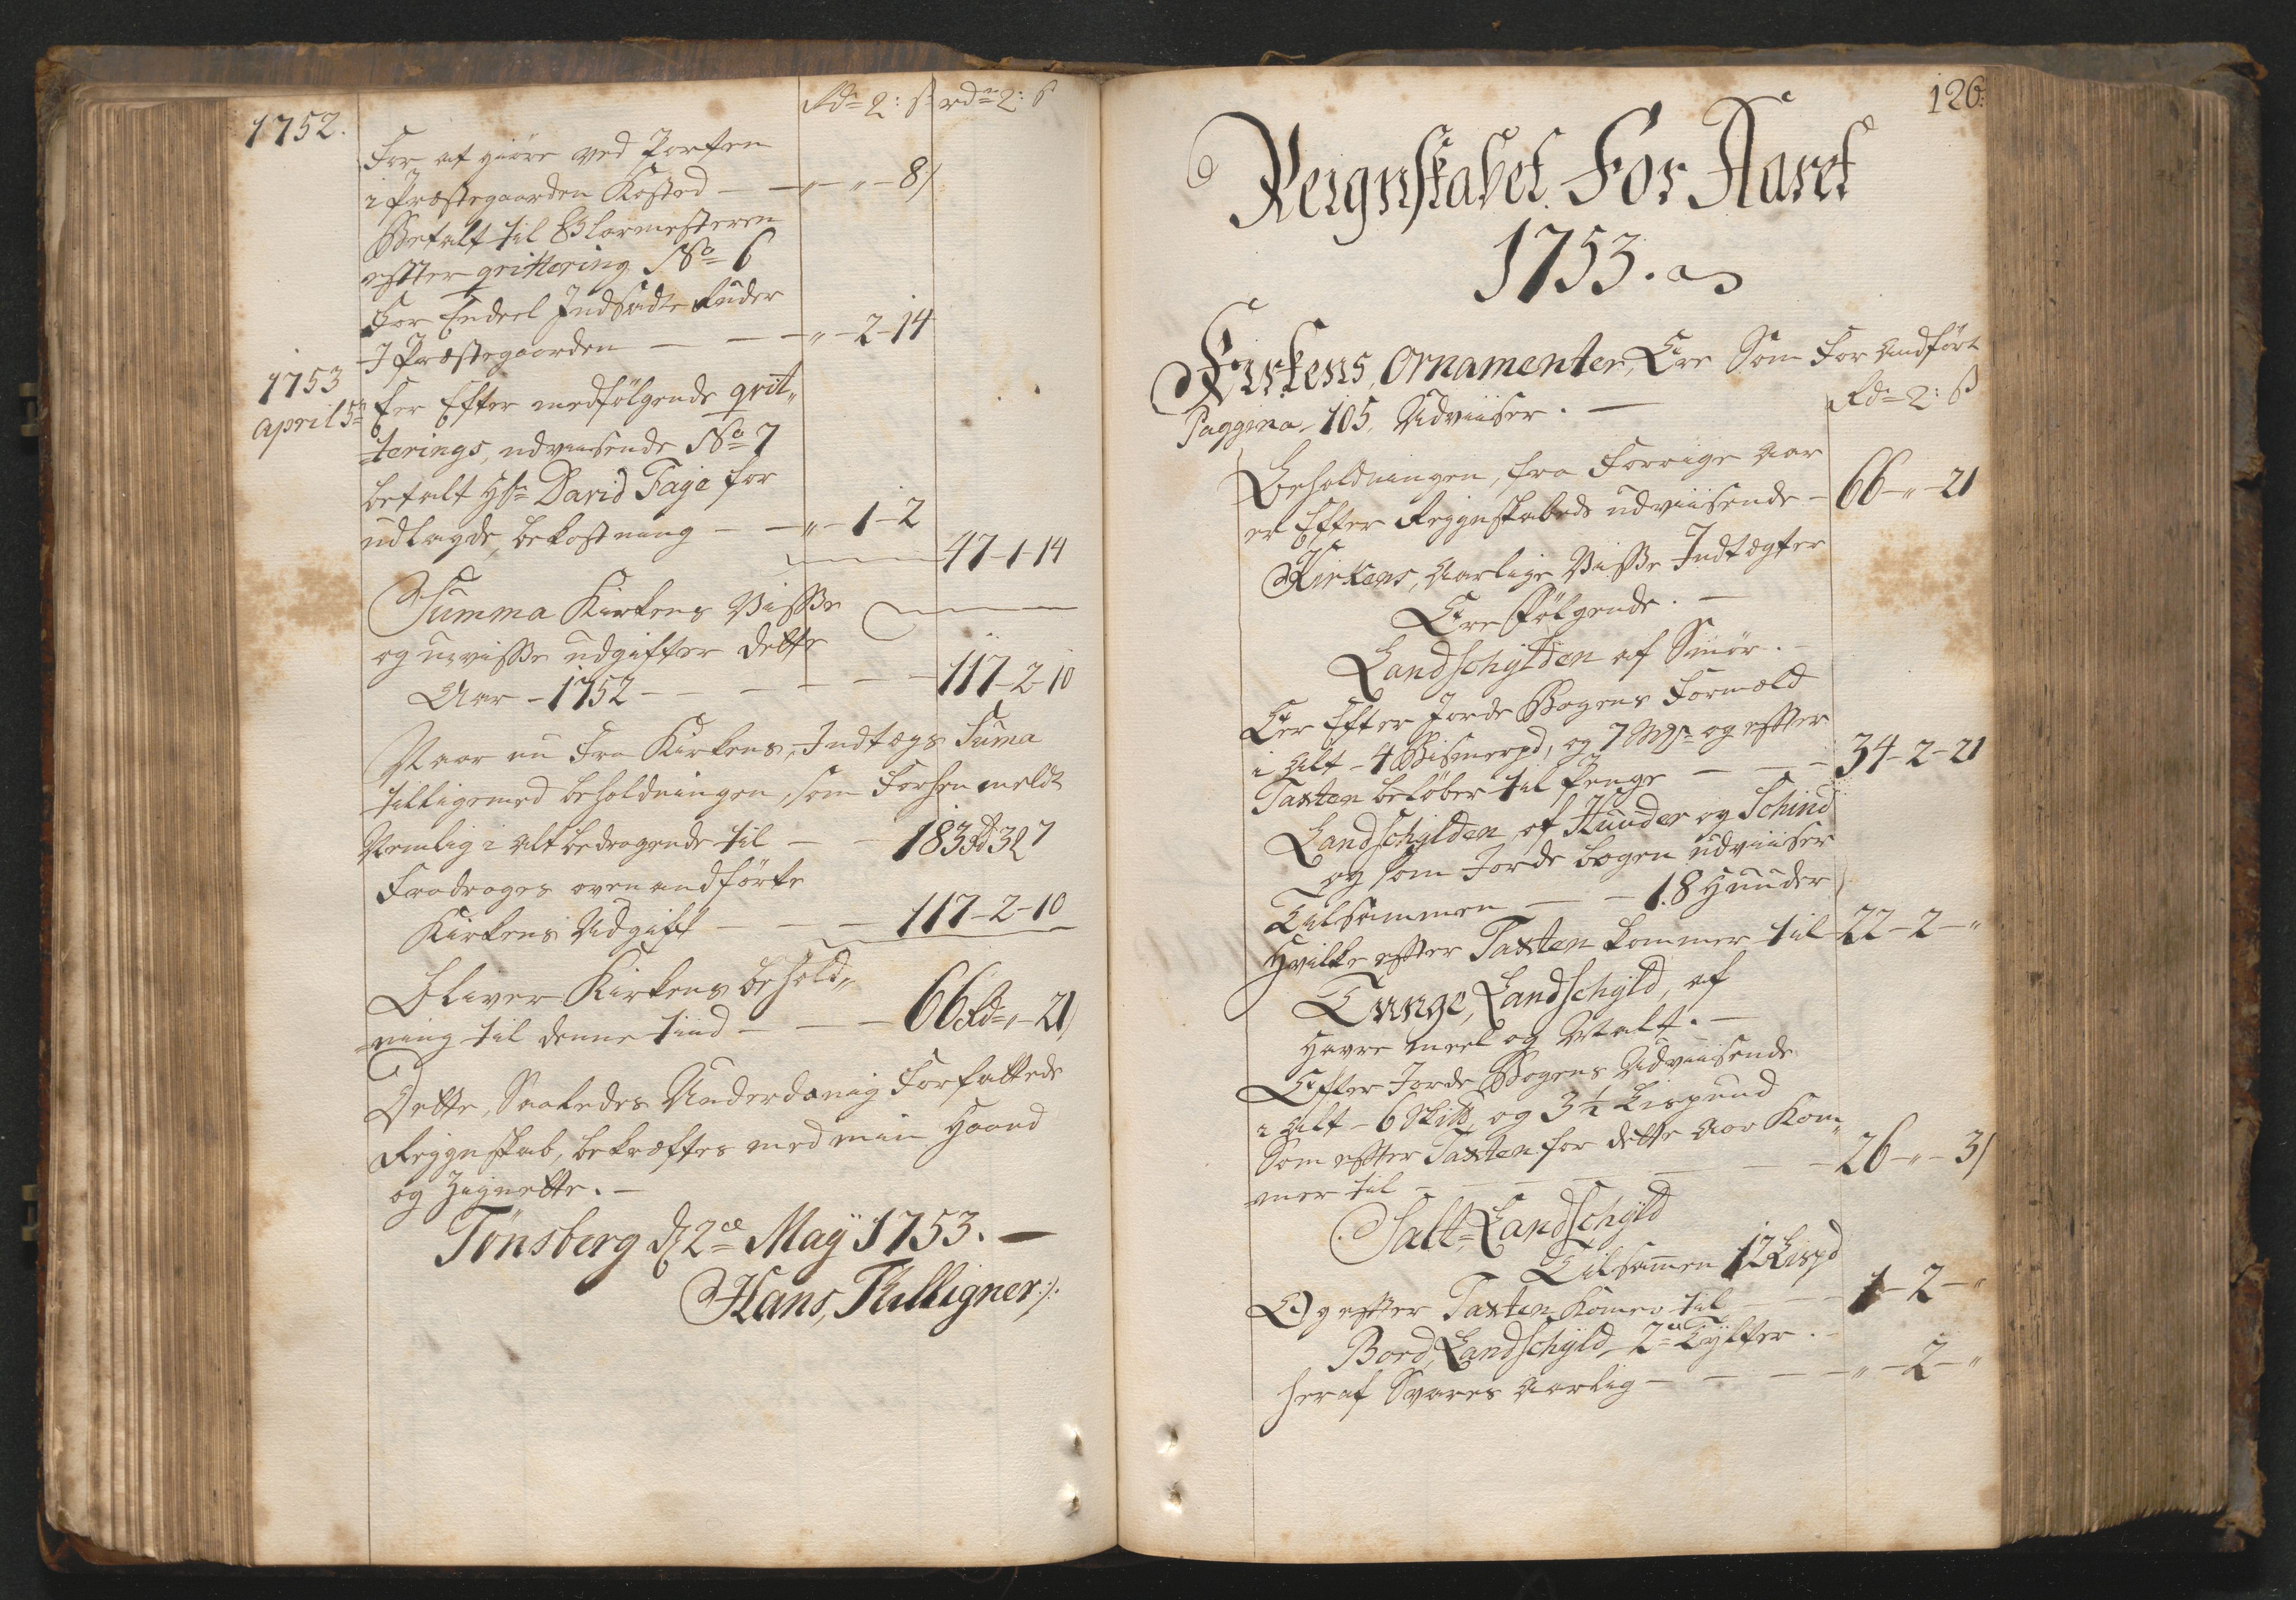 Rd= 2: ß rd= 2: ß
1752.
For at giöre ved Porten
i Præstegaarden Kosted — „ — „ — 8
Betalt til Glarmesteren
effter qvittering No= 6
For Endeel Indsadte Ruder
I Præstegaarden — „ — 2 — 14
1753
april 5=
Er Efter medfölgende qvit„
terings, udviisende No= 7
betalt Hr= David Faye for
udlagde, bekostning — „ — 1 — 2
47-1-14
Summa Kirkens Visse
og uvisse udgifter dette
Aar - 1752 — 117-2-10
Naar nu Fra Kirkens, Indtægs Suma
tilligemed beholdningen, som Forhen meldt
Nemlig i Alt bedragende til — 183 Rd 3 2 7
Fradrages ovenandförte
Kirkens Udgift — 117-2-10
Bliver Kirkens behold„
ning til denne tiid — 66 Rd= „ - 21
Dette, Saaledes Underdanig Forfattede
Regnskab, bekræftes med min Haand
og Zignette. —
Tönsberg d 2= Maÿ 1753. —
Hans, Thilligner
126:
Reignskabet For Aaret
1753.
Kirkens, Ornamenter, Ere Som For Andfört
Paggina - 105, Udviiser. —
Rd= 2: ß
Beholdningen, fra Forrige Aar
er Efter Regnskabeds udviisende — 66 — „ — 21
Kirkens, Aarlige Visse Indtægter
Ere Fölgende. —
Landschylden af Smör. —
Er Efter Jorde Bogens Formeld
i Alt - 4 Bismerpd, og 7 Mk= og effter
Taxten belöber til Penge — 34-2-21
Landschylden af Huuder og Schind
og som Jorde bogen udviiser
Tilsammen — 18 Huuder
Hvilke effter Taxten kommer til 22-2-„
Tunge, Landschyld, af
Havre meel og Malt. —
Effter Jorde Bogens Udviisende
i Alt - 6 Skitt, og 3 ½ Lispund
Som effter Taxten for dette Aar Kom„
mer til — 26 — „ — 3
Salt= Landschyld
Tilsamen 12 Lispd
Og effter Taxten Komer til — 1-2-„
Bord, Landschÿld, 2= Tÿlfter. —
heraf Svares Aarlig — „ — 2 — „